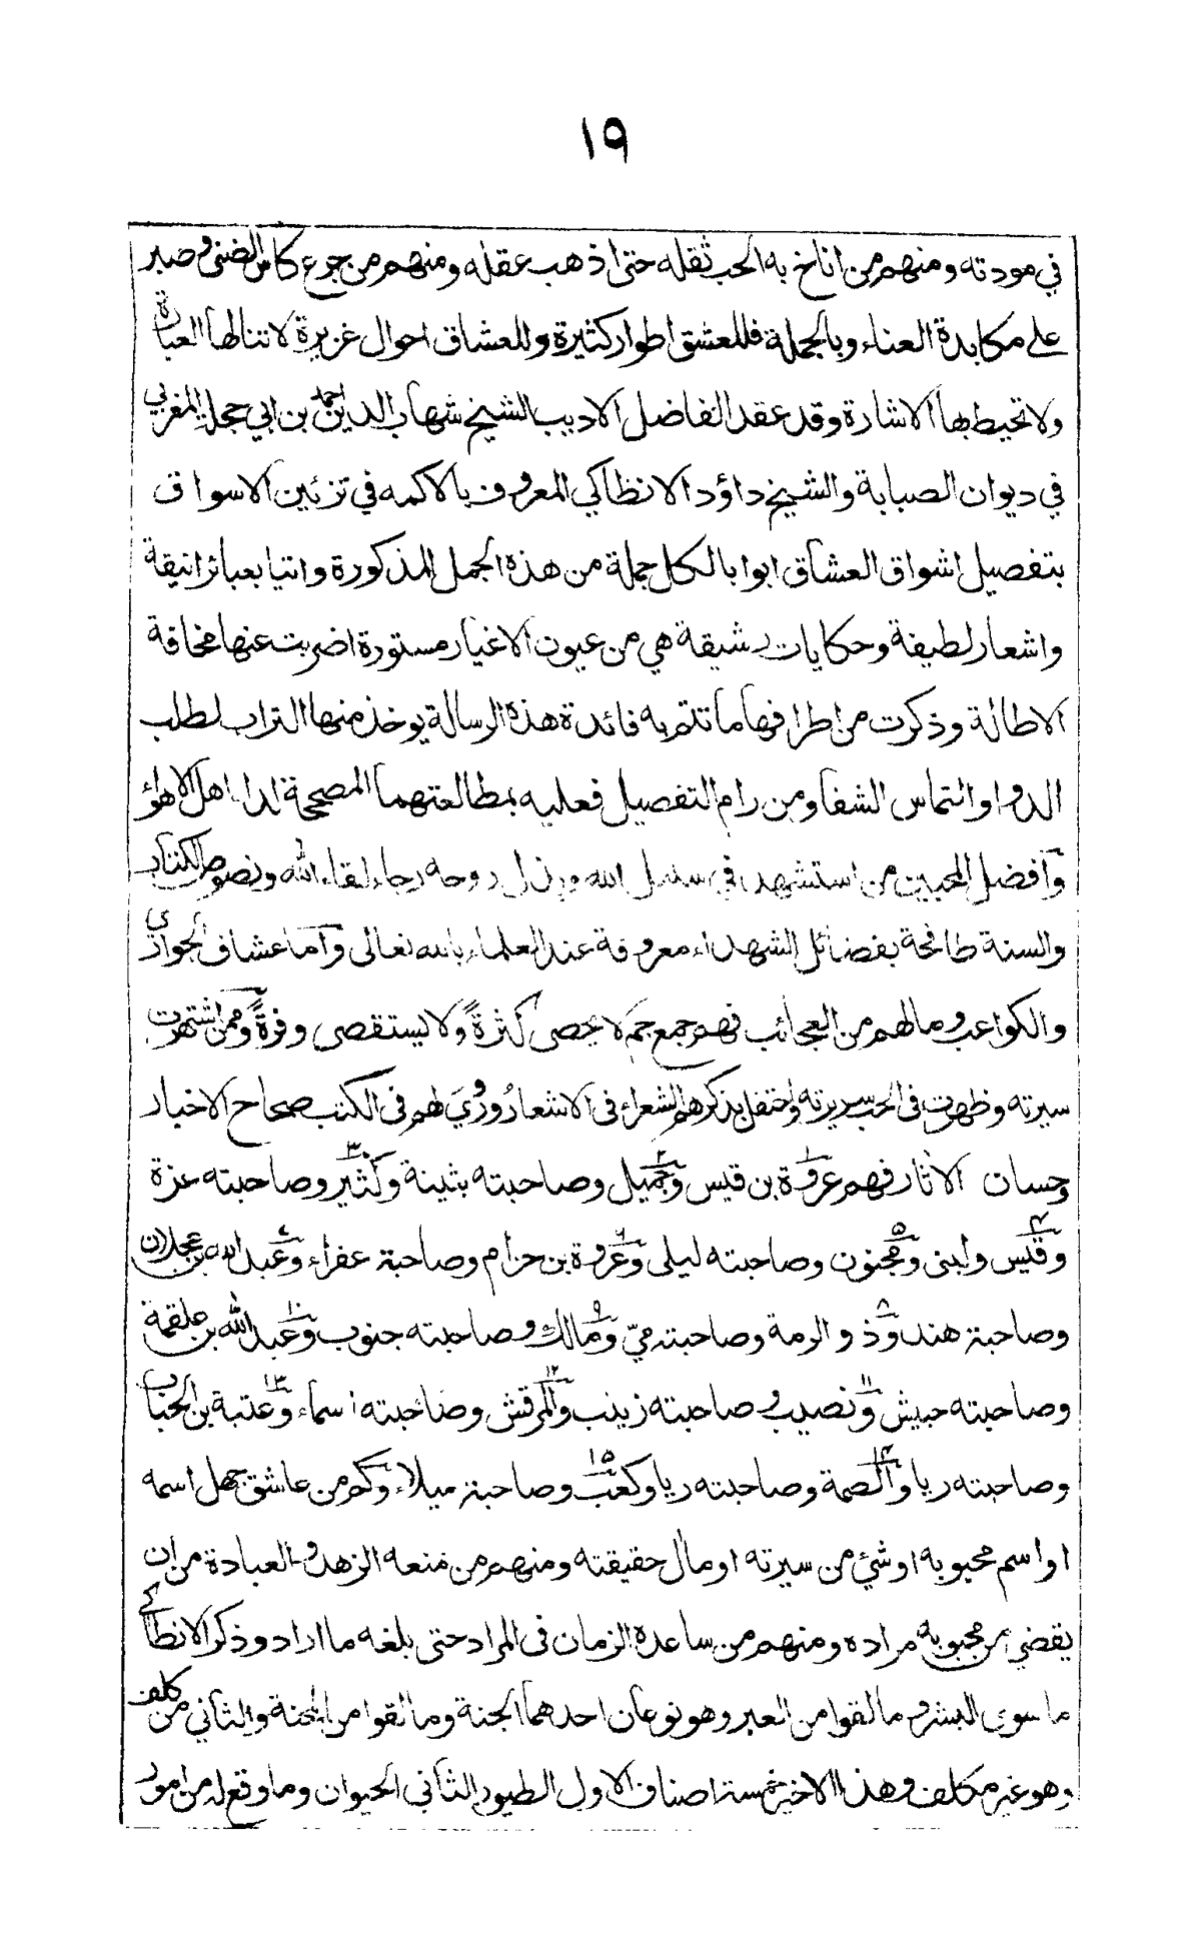 ١٩
في مودته ومنهم من اناخ به الحب ثقله حتى اذهب عقله ومنهم من جرع كاس الضنى وصبر
على مكابدة العناء وبالجملة فللعشق اطوار كثيرة وللعشاق احوال غزيرة لا تنالها العبارة
ولا تحيط بها الاشارة وقد عقد الفاضل الاديب الشيخ شهاب الدين احمد بن ابي حجلة المغربي
في ديوان الصبابة والشيخ داؤد الانطاكي المعروف بالاكمه في تزئين الاسواق
بتفصيل اشواق العشاق ابوابا لكل جملة من هذه الجمل المذكورة واتيا بعبائر انيقة
واشعار لطيفة وحكايات رشيقة هي من عيون الاغيار مستورة اضربت عنها مخافة
الاطالة وذكرت من اطرافها ما تتم به فائدة هذه الرسالة يوخذ منها التراب لطلب
الدوا والتماس الشفا ومن رام التفصيل فعليه بمطالعتهما المصححة لدا اهل الاهواء
وآفضل المحبين من استشهد في سبيل الله وبذل روحه رجاء لقاء الله ونصوص الكتاب
والسنة طافحة بفضائل الشهداء معروفة عند العلماء بالله تعالى وآما عشاق الجواري
والكواعب وما لهم من العجائب فهم جمع جم لا يحصى كثرةً ولا يستقصى وفرةً وممن اشتهرت
سيرته وظهرت في الحب سريرته واحتفل بذكرهم الشعراء في الاشعار وَرُوِيَ لهم في الكتب صحاح الاخبار
وحسان الاثار فهم عروة بن قيس ١ وجميل ٢ وصاحبته بثينة وكثير ٣ وصاحبته عزة
وقيس ٤ ولبنى ومجنون ٥ وصاحبته ليلى وعروة ٦ بن حزام وصاحبة عفراء وعبد الله ٧ بن عجلان
وصاحبة هند وذو ٨ الرمة وصاحبته ميّ ومالك ٩ وصاحبته جنوب وعبد الله ١٠ بن علقمة
وصاحبته حبيش ونصيب ١١ وصاحبته زينب والمرقش ١٢ وصاحبته اسماء وعتبة ١٣ بن الحباب
وصاحبته ريا والصمة ١٤ وصاحبته ريا وكعب ١٥ وصاحبة ميلاء وكم من عاشق جهل اسمه
او اسم محبوبه او شئ من سيرته او مآل حقيقته ومنهم من منعه الزهد والعبادة من ان
يقضي من محبوبه مراده ومنهم من ساعده الزمان في المراد حتى بلغه ما اراد وذكر الانطاكي
ما سوى البشر وما لقوا من العبر وهو نوعان احدهما الجنة وما لقوا من المحنة والثاني من كلف
وهو غير مكلف وهذا الاخير خمسة اصناف الاول الطيور الثاني الحيوان وما وقع له من امور